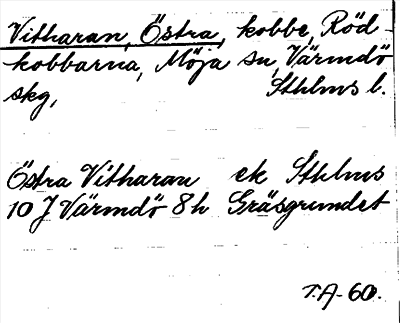 Vitharan, Östra, kobbe, Röd-
kobbarna, Möja sn, Värmdö
skg, Sthlms l.
Östra Vitharan ek Sthlms
10 J Värmdö 8 h Gräsgrundet
T.A-60.